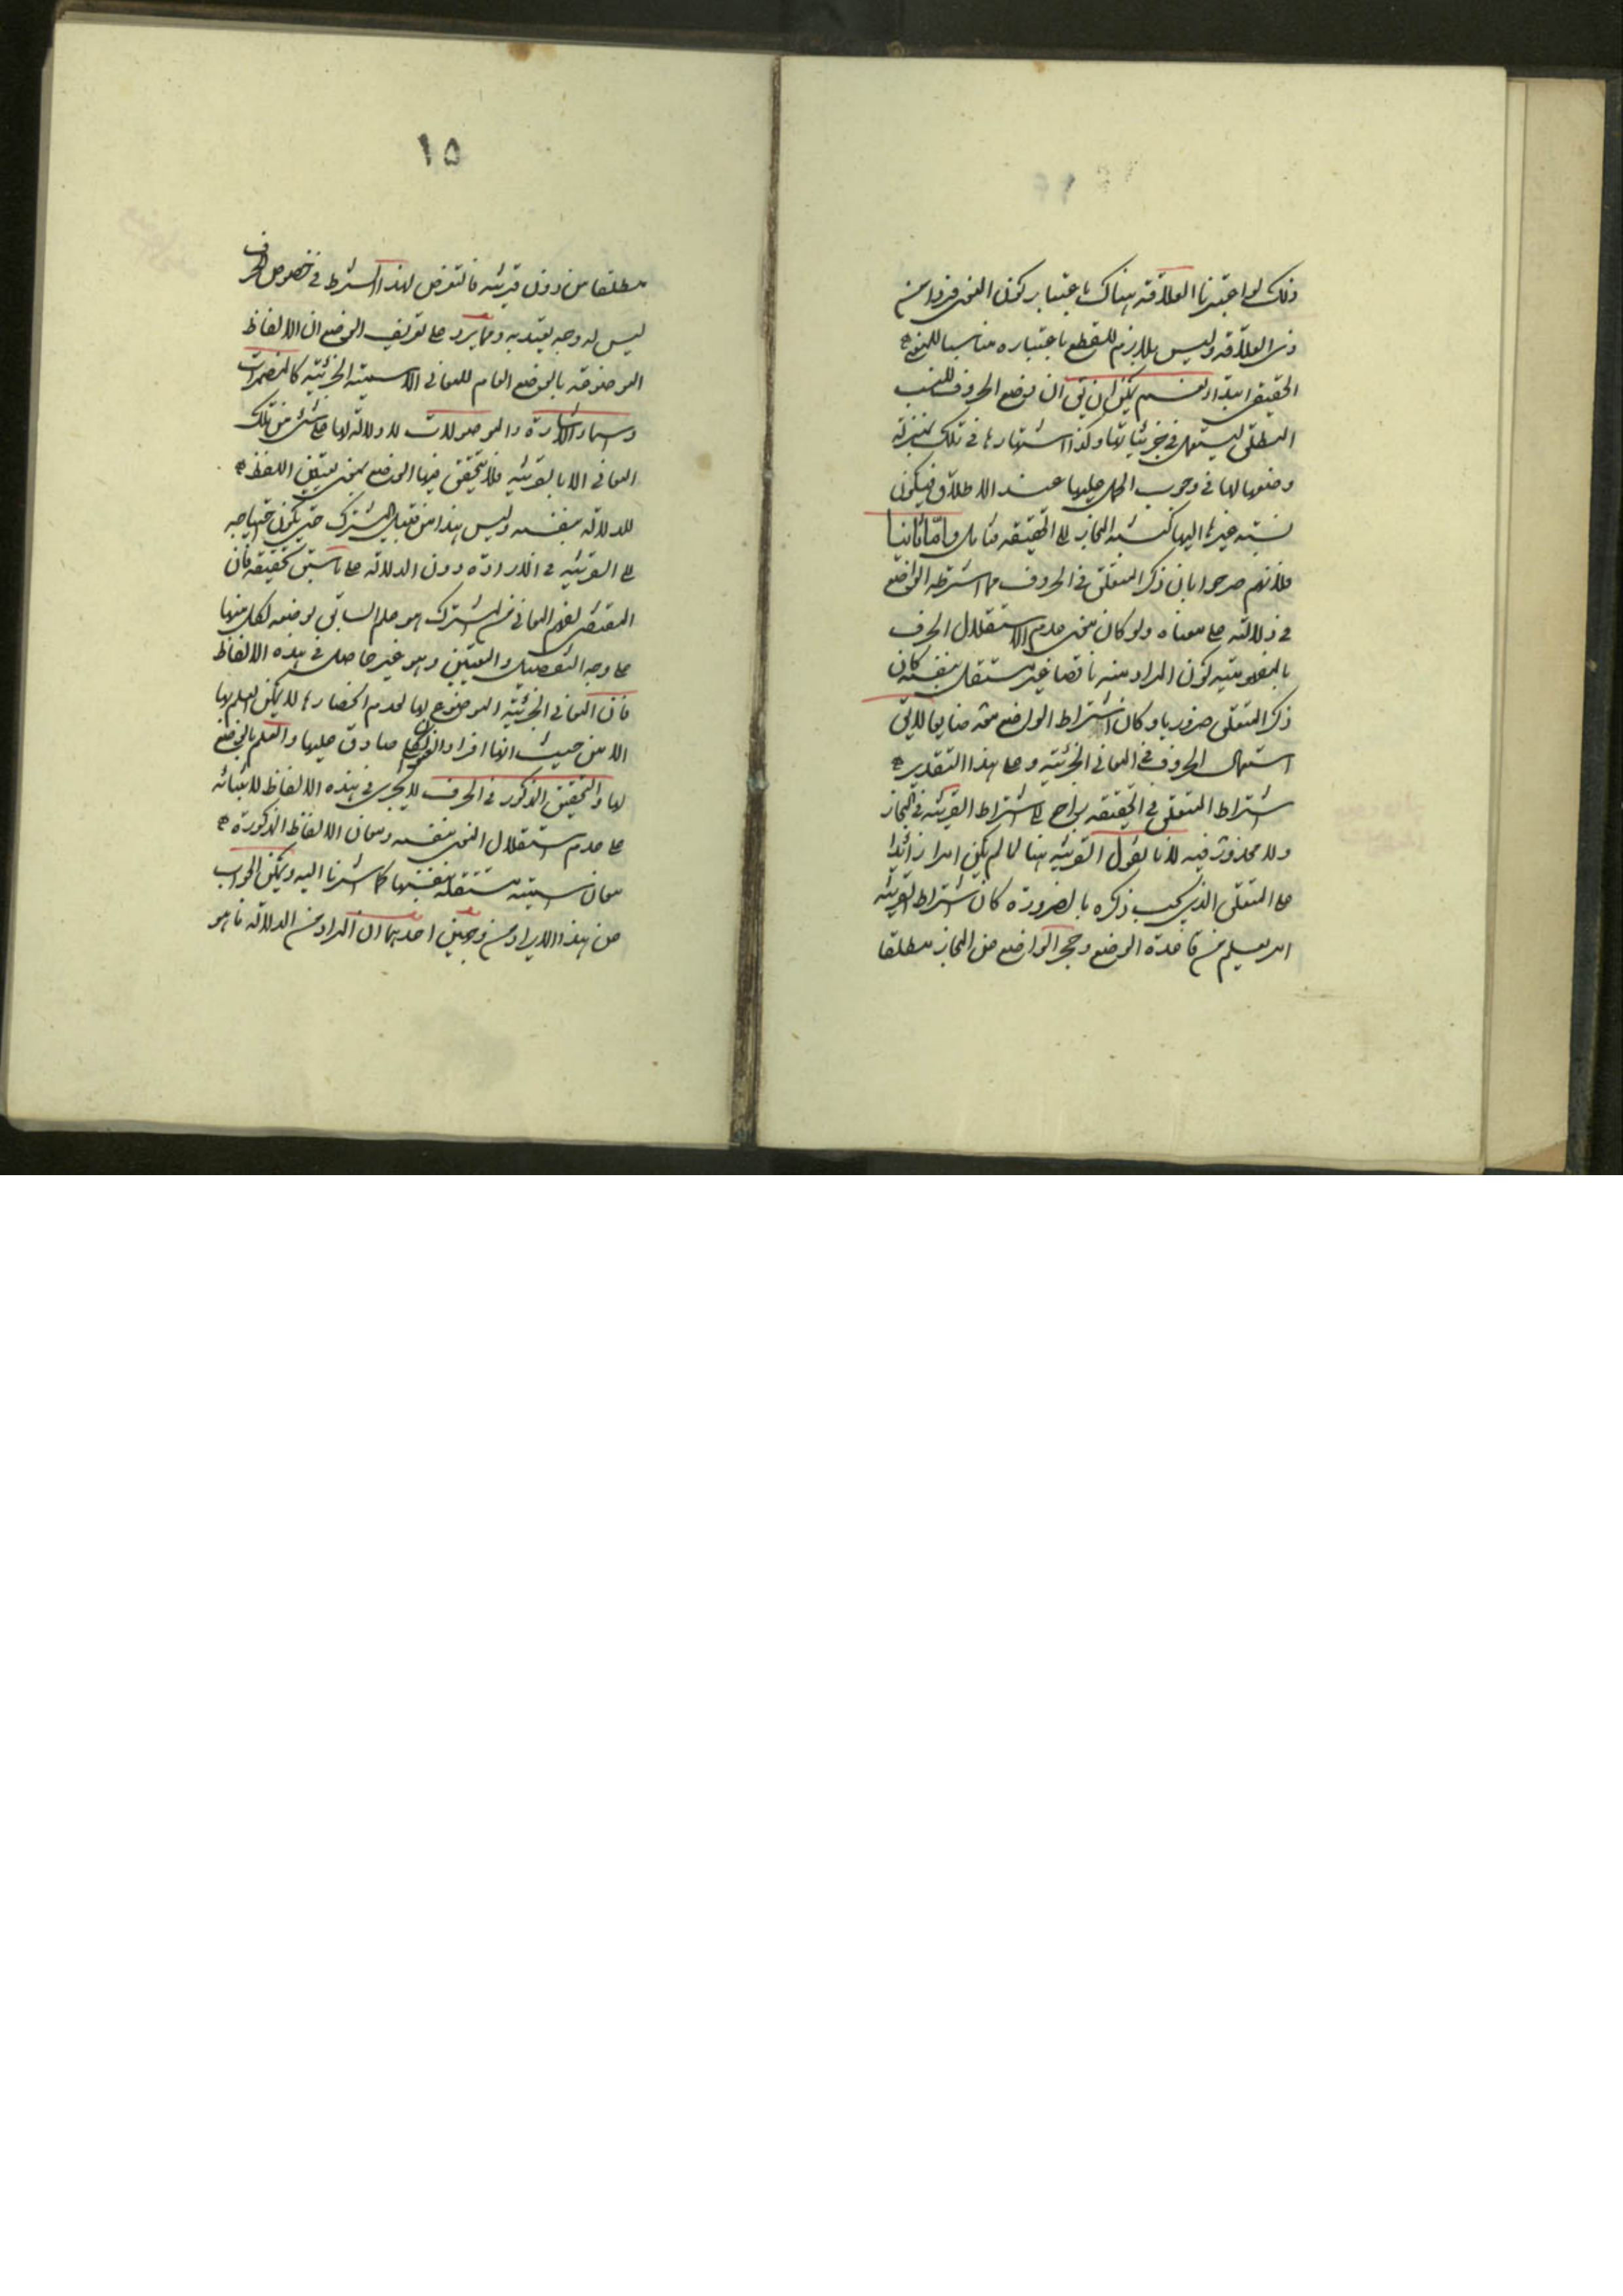 ذلك لو اعتبرنا العلاقة هناك باعتبار كون المعنى فردا من
ذى العلاقة وليس بلازم للقطع باعتباره مناسبا للمعنى
الحقيقى ابتداء نعم يمكن ان يق ان وضع الحروف للنسب
المطلق ليستعمل فى جزئياتها وكذا اشتهارها فى تلك بمنزلة
وضعها لها فى وجوب الحمل عليها عند الاطلاق فيكون
نسبة غيرها اليها كنسبة المجاز الى الحقيقة فتأمل واما ثانيا
فلانهم صرحوا بان ذكر المتعلق فى الحروف مما اشترطه الواضع
فى دلالته على معناه ولو كان معنى عدم الاستقلال الحرف
بالمفهومية كون المراد منه ناقصا غير مستقل بنفسه كان
ذكر المتعلق ضروريا وكان اشتراط الواضع
استعمال الحروف فى المعانى الجزئية وعلى هذا التقدير
اشتراط المتعلق فى الحقيقة راجع الى اشتراط القرينة فى المجاز
ولا محذور فيه لانا نقول القرينة هنا لما لم يكن امرا زائدا
على المتعلق الذى يجب ذكره بالضرورة كان اشتراط القرينة
امر يعلم من قاعدة الوضع وحجر الواضع عن المجاز مطلقا
١٥
مطلقا من دون قرينة فالتعرض لهذا الشرط فى خصوص الحرف
ليس له وجه يعتد به ومما يرد على تعريف الوضع ان الالفاظ
الموضوعة بالوضع العام للمعانى الاسمية الجزئية كالمضمرات
واسماء الاشارة والموصولات لا دلالة لها على شئ من تلك
المعانى الا بالقرينة فلا يتحقق فيها الوضع بمعنى تعيين اللفظ
للدلالة بنفسه وليس هذا من قبيل المشترك حتى يكون احتياجه
الى القرينة فى الارادة دون الدلالة على ما سبق تحقيقه فان
المقتضى لفهم المعانى من المشترك هو علم السابق بوضعه لكل منها
على وجه التفصيل والتعيين وهو غير حاصل فى هذه الالفاظ
فان المعانى الجزئية الموضوع لها لعدم انحصارها لا يمكن العلم بها
الا من حيث انها افراد صادق عليها والعلم بالوضع
لها والتحقيق المذكور فى الحرف لا يجرى فى هذه الالفاظ لابتنائه
على عدم استقلال المعنى بنفسه ومعانى الالفاظ المذكورة
معان اسمية مستقلة بنفسها كما اشرنا اليه ويمكن الجواب
عن هذا الايراد من وجهين احدهما ان المراد من الدلالة ما هو